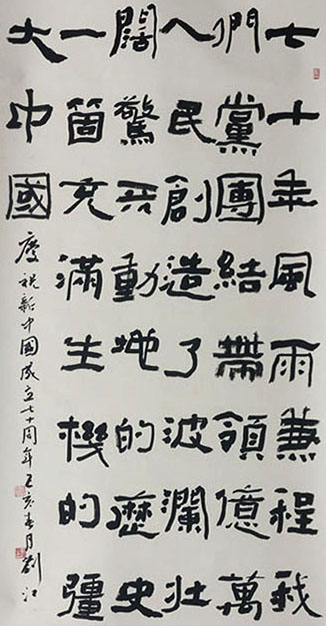 七十年風雨兼程我
們黨團結帶領億萬
人民創造了波瀾壯
闊驚天動地的歷史
一箇充滿生機的彊
大中國
慶祝新中國成立七十周年己亥春月劉江